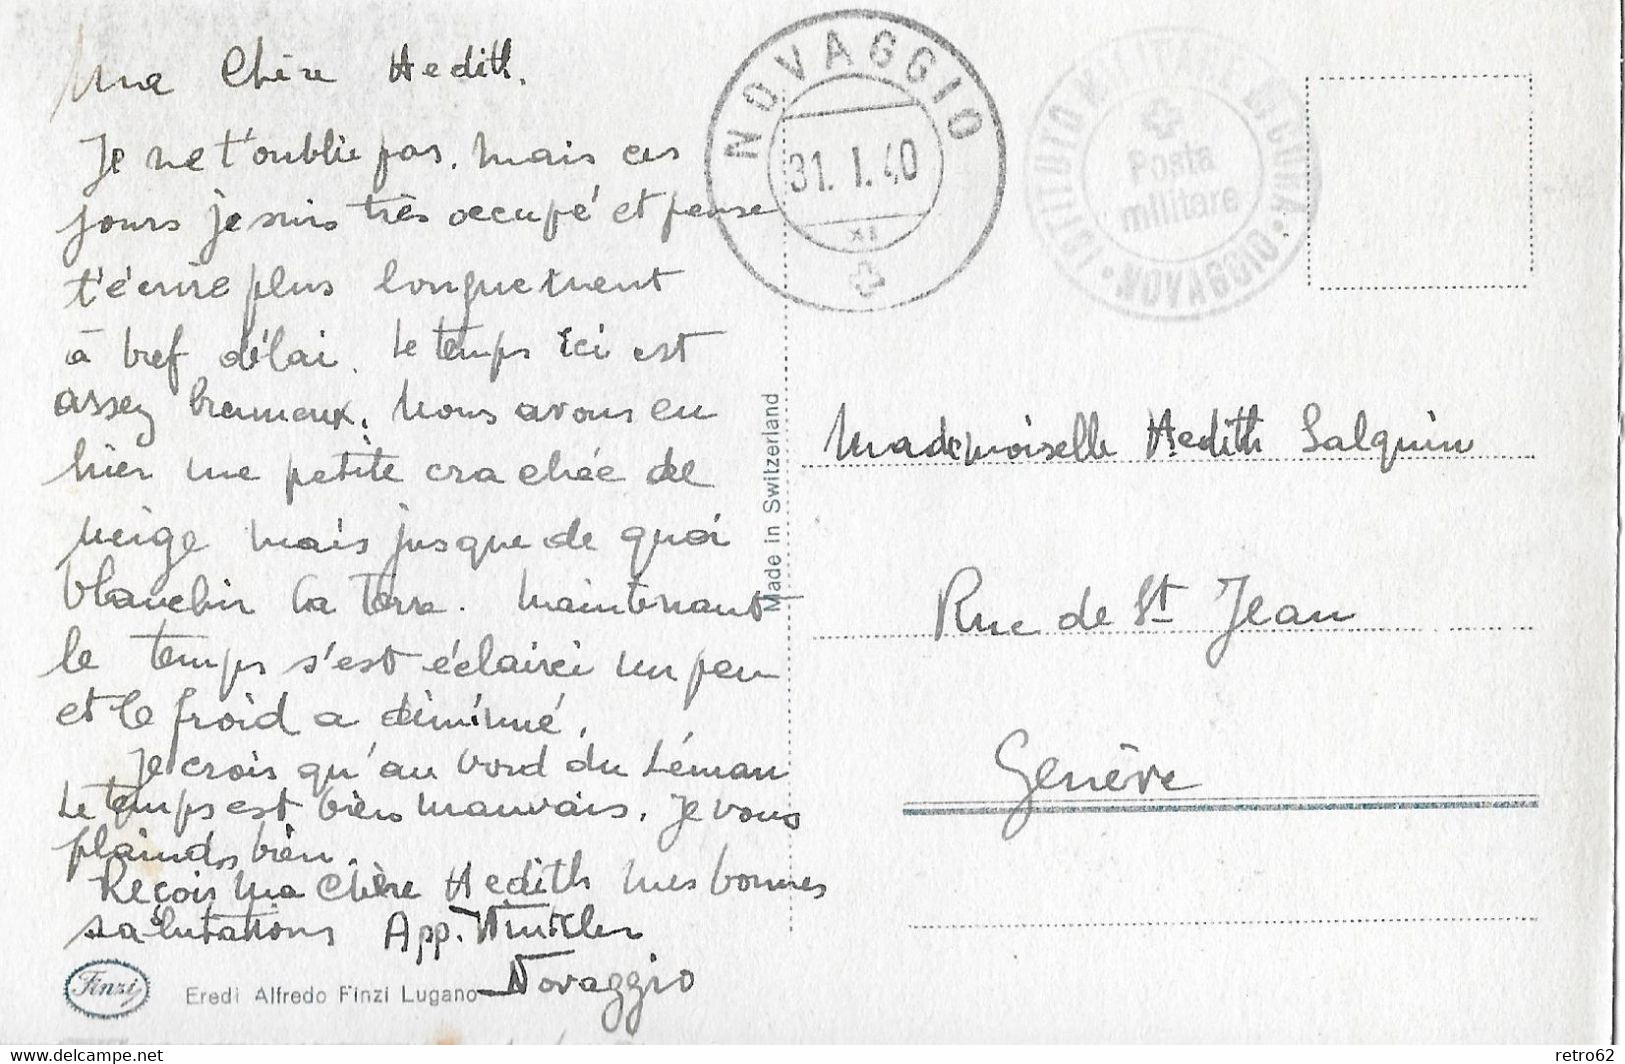 Ma Chère Hedith.
Je ne t'oublie pas. Mais ces
jours je suis très occupé et pense
t'écrire plus longuement
à bref délai. Le temps ici est
assez brumeux. Nous avons eu
hier une petite crachée de
neige mais jusque de quoi
blanchir la terre. Maintenant
le temps s'est éclairci un peu
et le froid a diminué.
Je crois qu'au bord du Léman
le temps est bien mauvais. Je vous
plainds bien.
Reçois ma chère Hedith mes bonnes
salutations App. Winkler
Novaggio
Finzi
Eredi Alfredo Finzi Lugano
Made in Switzerland
NOVAGGIO
31. 1. 40
XI
Posta
militare
NOVAGGIO
Mademoiselle Hedith Salquin
Rue de St Jean
Genève
https://www.delcampe.net
retro62